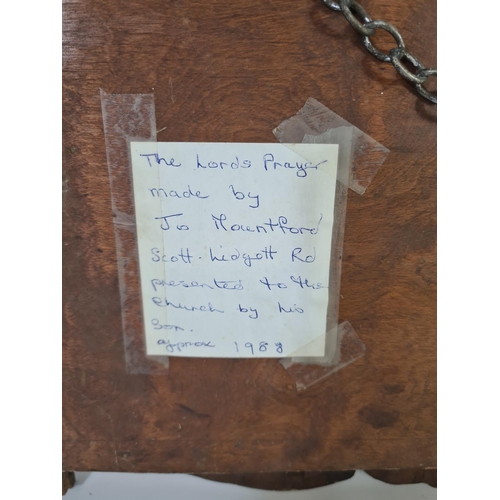 The Lords Prayer
made by
Jo Mountford
Scott-Lidgett Rd
presented to the
Church by his
Son.
approx 1988